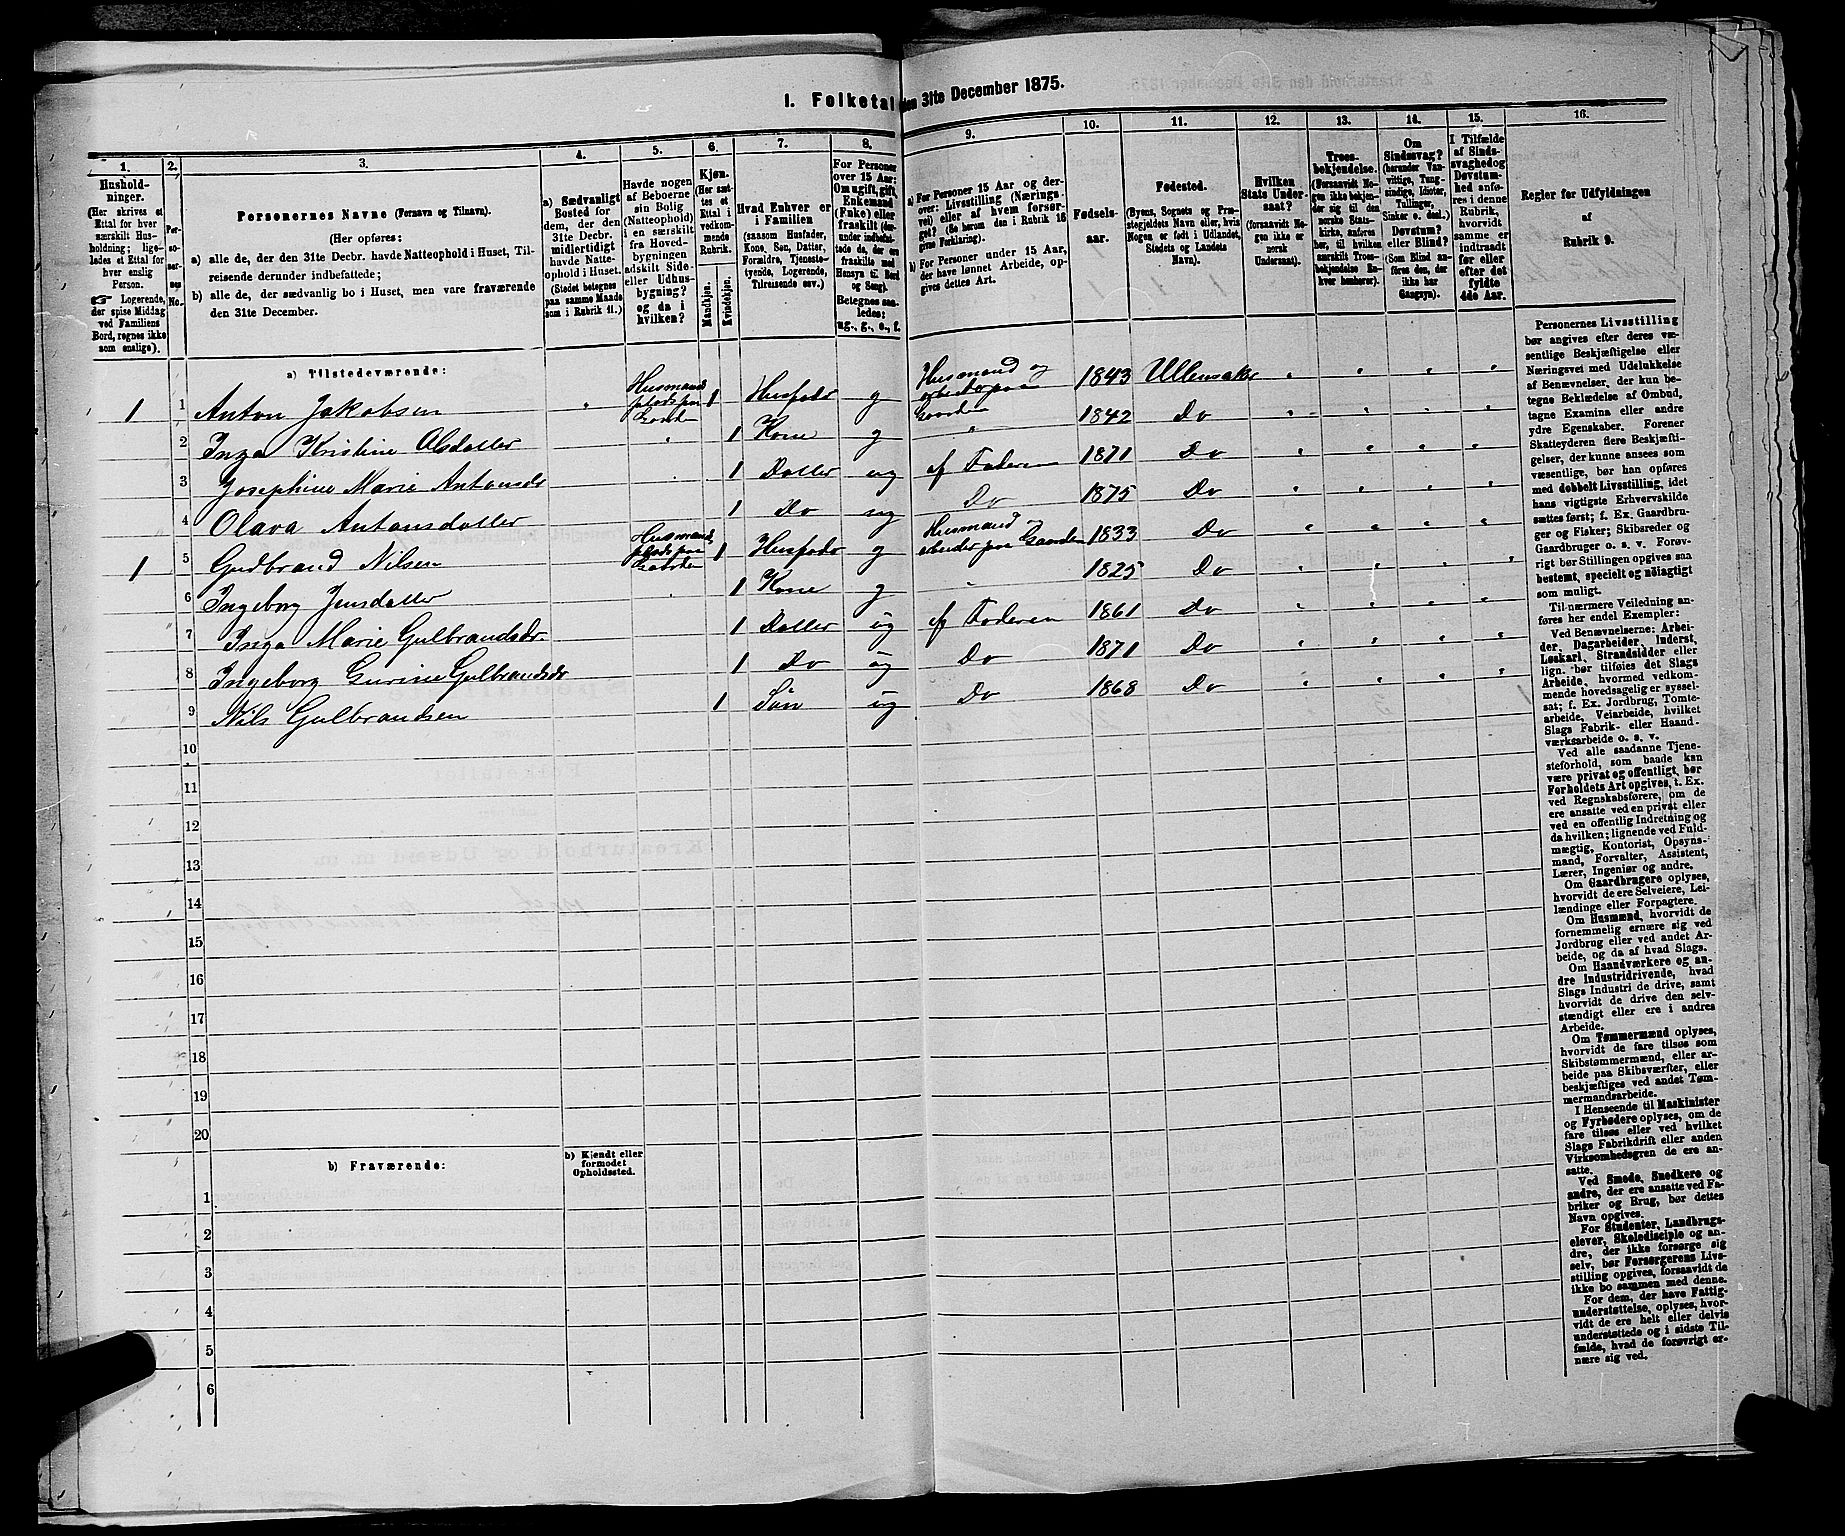 1. Folketal den 31te December 1875.
1. 2. 3. 4. 5. 6. 7. 8. 9. 10. 11. 12. 13. 14. 15. 16.
Hushold-
ninger.
(Her skrives et
Ettal for hver
særskilt Hus-
holdning; lige-
ledes et Ettal for
hver enslig
Person.
☞ Logerende,
der spise Middag
ved Familiens
Bord, regnes ikke
som enslige).
Per-
so-
ner-
nes
No.
Personernes Navne (Fornavn og Tilnavn).
(Her opføres:
a) alle de, der den 31te Decbr. havde Natteophold i Huset, Til-
reisende derunder indbefattede;
b) alle de, der sædvanlig bo i Huset, men vare fraværende
den 31te December.
a) Sædvanligt
Bosted for
dem, der den
31te Decbr.
midlertidigt
havde Natte-
ophold i Huset.
(Stedet betegnes
paa samme Maade
som i Rubrik 11.)
Havde nogen
af Beboerne
sin Bolig
(Natteophold)
i en særskilt
fra Hoved-
bygningen
adskilt Side-
eller Udhus-
bygning?
og da i
hvilken?
Kjøn.
(Her sæt-
tes et
Ettal i
vedkom-
mende
Rubrik.
Mandkjøn.
Kvindekjøn.
Hvad Enhver er
i Familien
(saasom Husfader,
Kone, Søn, Datter,
Forældre, Tjeneste-
tyende, Logerende,
Tilreisende osv.)
For Personer
over 15 Aar:
Om ugift, gift,
Enkemand
(Enke) eller
fraskilt (der-
under indbefat-
tede de, der ere
fraskilte med
Hensyn til Bord
og Seng).
Betegnes saa-
ledes:
ug., g., e., f.
a) For Personer 15 Aar og der-
over: Livsstilling (Nærings-
vei) eller af hvem forsør-
get? (Se herom den i Rubrik 16
givne Forklaring).
b) For Personer under 15 Aar,
der have lønnet Arbeide, op-
gives dettes Art.
Fødsels-
aar.
Fødested.
(Byens, Sognets og Præ-
stegjeldets Navn eller, hvis
Nogen er født i Udlandet,
Stedets og Landets
Navn).
Hvilken
Stats Under-
saat?
(forsaavidt No-
gen ikke er
norsk
Undersaat).
Troes-
bekjendelse.
(Forsaavidt No-
gen ikke bekjen-
der sig til den
norske Stats-
kirke, anføres
her, til hvilken
særskilt Troes-
bekjendelse En-
hver henhører).
Om
Sindssvag?
(herunder Van-
vittige, Tung-
sindige, Idioter,
Tullinger,
Sinker o. desl.)
Døvstum?
eller Blind?
(Som Blind an-
føres den, der
ikke har
Gangsyn).
I Tilfælde
af Sinds-
svaghed og
Døvstum-
hed anfø-
res i denne
Rubrik,
hvorvidt
samme er
indtraadt
før eller
efter det
fyldte
4de Aar.
Regler for Udfyldningen
af
Rubrik 9.
a) Tilstedeværende:
1 1 Anton Jakobsen " Husmands plads paa Gaarden 1 Husfader g Husmand og arbeider paa Gaarden 1843 Ullensaker " " " "
2 Inga Kristine Olsdatter " 1 Kone g " 1842 Do " " " "
3 Josephine Marie Antonsdr 1 Datter ug af Faderen 1871 Do " " " "
4 Olava Antonsdatter 1 Do ug Do 1875 Do " " " "
1 5 Gudbrand Nilsen Husmands plads paa Gaarden 1 Husfader g Husmand arbeider paa Gaarden 1833 Do " " " "
6 Ingeborg Jensdatter " 1 Kone g " 1825 Do " " " "
7 Inga Marie Gulbrandsdr 1 Datter ug af Faderen 1861 Do " " " "
8 Ingeborg Gurine Gulbrandsdr 1 Do ug Do 1871 Do " " " "
9 Nils Gulbrandsen 1 Søn ug Do 1868 Do " " " "
10
11
12
13
14
15
16
17
18
19
20
b) Fraværende:
b) Kjendt eller
formodet
Opholdssted.
1
2
3
4
5
6
Personernes Livsstilling
bør angives efter deres væ-
sentlige Beskjæftigelse eller
Næringsvei med Udelukkelse
af Benævnelser, der kun be-
tegne Beklædelse af Ombud,
tagne Examina eller andre
ydre Egenskaber. Forener
Skatteyderen flere Beskjæfti-
gelser, der kunne ansees som
væsentlige, bør han opføres
med dobbelt Livsstilling, idet
hans vigtigste Erhvervskilde
sættes først; f. Ex. Gaardbru-
ger og Fisker; Skibsreder og
Gaardbruger o. s. v. Forøv-
rigt bør Stillingen opgives saa
bestemt, specielt og nøiagtigt
som muligt.
Til nærmere Veiledning an-
føres her endel Exempler:
Ved Benævnelserne: Arbei-
der, Dagarbeider, Inderst,
Løskarl, Strandsidder eller
lign. bør tilføies det Slags
Arbeide, hvormed vedkom-
mende hovedsagelig er syssel-
sat; f. Ex. Jordbrug, Tomte-
arbeide, Veiarbeide, hvilket
Slags Fabrik- eller Haand-
værksarbeide o. s. v.
Ved alle saadanne Tjene-
steforhold, som baade kan
være privat og offentligt, bør
Forholdets Art opgives, t. Ex.
ved Regnskabsførere, om de
ere ansatte ved en privat eller
ved en offentlig Indretning og
da hvilken; lignende ved Fuld-
mægtig, Kontorist, Opsyns-
mand, Forvalter, Assistent,
Lærer, Ingeniør og andre.
Om Gaardbrugere oplyses,
hvorvidt de ere Selveiere, Lei-
lændinge eller Forpagtere.
Om Husmænd, hvorvidt de
fornemmelig ernære sig ved
Jordbrug eller ved andet Ar-
beide, og da af hvad Slags.
Om Haandværkere og an-
dre Industridrivende, hvad
Slags Industri de drive, samt
hvorvidt de drive den selv-
stændigt eller ere i andres
Arbeide.
Om Tømmermænd oplyses,
hvorvidt de fare tilsøs som
Skibstømmermænd, eller ar-
beide paa Skibsværfter, eller
beskjæftiges ved andet Tøm-
mermandsarbeide.
I Henseende til Maskinister
og Fyrbødere oplyses, om de
fare tilsøs eller ved hvilket
Slags Fabrikdrift eller anden
Virksomhedsgren de ere an-
satte.
Ved Smede, Snedkere og
andre, der ere ansatte ved Fa-
briker og Brug, bør dettes
Navn opgives.
For Studenter, Landbrugs-
elever, Skoledisciple og an-
dre, der ikke forsørge sig
selv, bør Forsørgerens Livs-
stilling opgives, forsaavidt de
ikke bo sammen med denne.
For dem, der have Fattig-
understøttelse, oplyses, hvor-
vidt de ere helt eller delvis
understøttede og i sidste Til-
fælde, hvad de forøvrigt er-
nære sig ved.